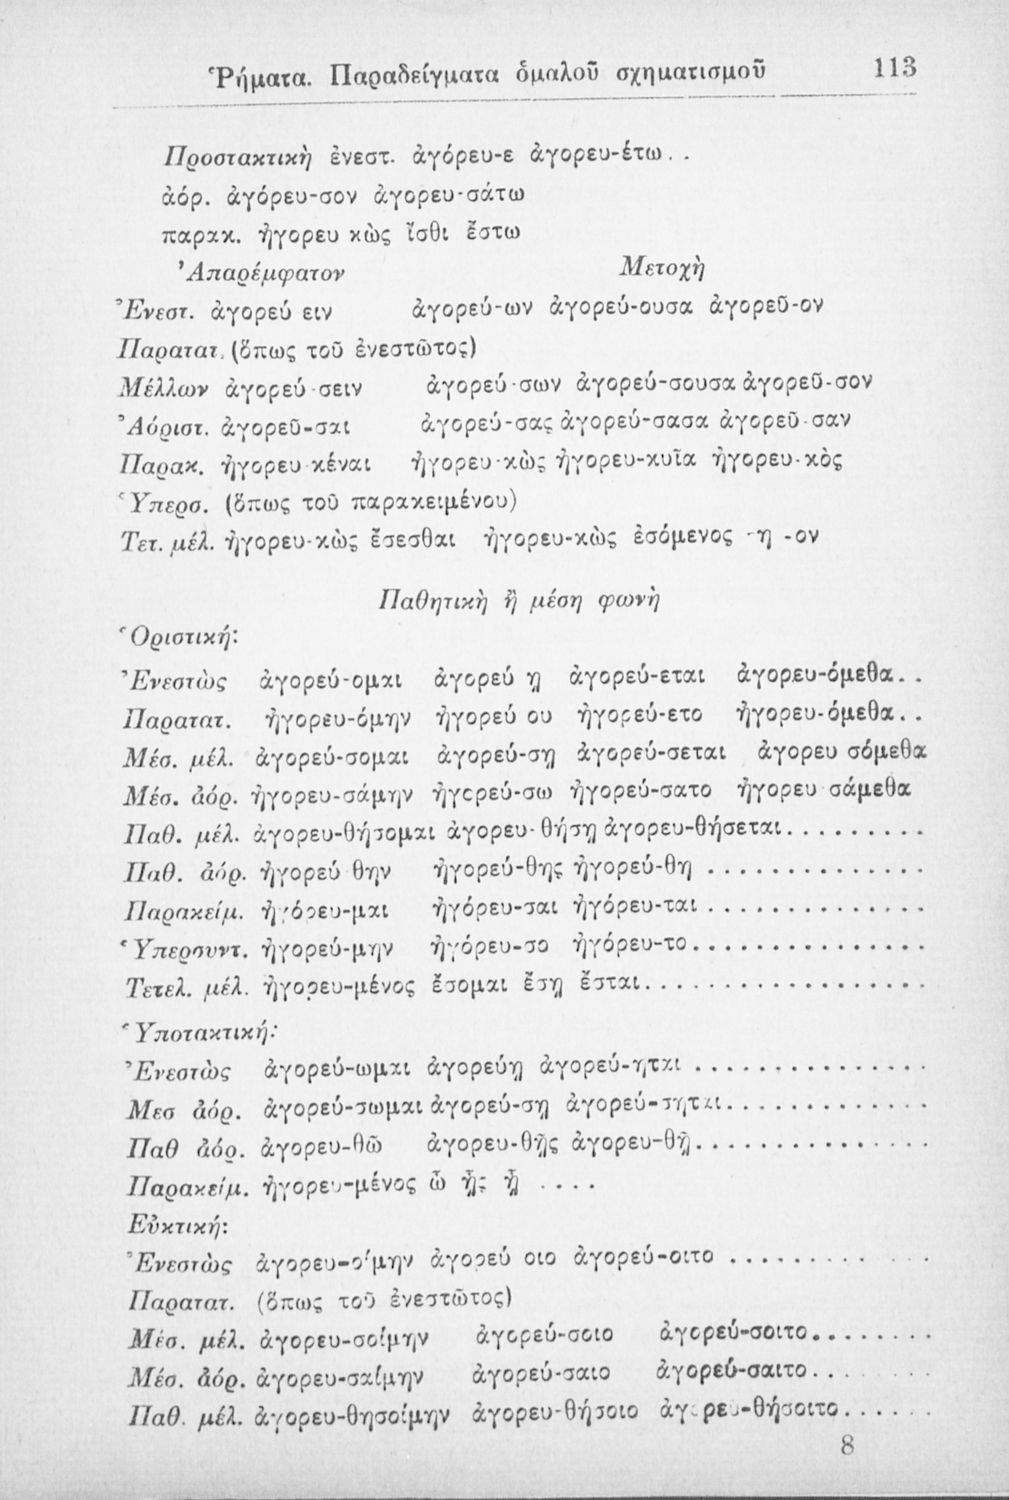 Ῥήματα. Παραδείγματα ὁμαλοῦ σχηματισμοῦ 113
Προστακτικὴ ἐνεστ. ἀγόρευ-ε ἀγορευ-έτω. .
ἀόρ. ἀγόρευ-σον ἀγορευ-σάτω
παρακ. ἠγορευ κὼς ἴσθι ἔστω
Ἀπαρέμφατον Μετοχὴ
Ἐνεστ. ἀγορεύ ειν ἀγορεύ-ων ἀγορεύ-ουσα ἀγορεῦ-ον
Παρατατ. (ὅπως τοῦ ἐνεστῶτος)
Μέλλων ἀγορεύ-σειν ἀγορεύ-σων ἀγορεύ-σουσα ἀγορεῦ-σον
Ἀόριστ. ἀγορεῦ-σαι ἀγορεύ-σας ἀγορεύ-σασα ἀγορεῦ-σαν
Παρακ. ἠγορευ-κέναι ἠγορευ-κὼς ἠγορευ-κυῖα ἠγορευ-κὸς
Ὑπερσ. (ὅπως τοῦ παρακειμένου)
Τετ. μέλ. ἠγορευ-κὼς ἔσεσθαι ἠγορευ-κὼς ἐσόμενος -η -ον
Παθητικὴ ἢ μέση φωνὴ
Ὁριστική:
Ἐνεστὼς ἀγορεύ-ομαι ἀγορεύ ῃ ἀγορεύ-εται ἀγορευ-όμεθα. .
Παρατατ. ἠγορευ-όμην ἠγορεύ ου ἠγορεύ-ετο ἠγορευ-όμεθα. .
Μέσ. μέλ. ἀγορεύ-σομαι ἀγορεύ-σῃ ἀγορεύ-σεται ἀγορευ σόμεθα
Μέσ. ἀόρ. ἠγορευ-σάμην ἠγορεύ-σω ἠγορεύ-σατο ἠγορευ σάμεθα
Παθ. μέλ. ἀγορευ-θήσομαι ἀγορευ-θήσῃ ἀγορευ-θήσεται.........
Παθ. ἀόρ. ἠγορεύ θην ἠγορεύ-θης ἠγορεύ-θη ..............
Παρακείμ. ἠγόρευ-μαι ἠγόρευ-σαι ἠγόρευ-ται ..............
Ὑπερσυντ. ἠγορεύ-μην ἠγόρευ-σο ἠγόρευ-το...............
Τετελ. μέλ. ἠγορευ-μένος ἔσομαι ἔσῃ ἔσται..................
Ὑποτακτική:
Ἐνεστὼς ἀγορεύ-ωμαι ἀγορεύῃ ἀγορεύ-ηται ...............
Μεσ ἀόρ. ἀγορεύ-σωμαι ἀγορεύ-σῃ ἀγορεύ-σηται.............
Παθ ἀόρ. ἀγορευ-θῶ ἀγορευ-θῇς ἀγορευ-θῇ...............
Παρακείμ. ἠγορευ-μένος ὦ ᾖς ᾖ ....
Εὐκτική:
Ἐνεστὼς ἀγορευ-οίμην ἀγορεύ οιο ἀγορεύ-οιτο .............
Παρατατ. (ὅπως τοῦ ἐνεστῶτος)
Μέσ. μέλ. ἀγορευ-σοίμην ἀγορεύ-σοιο ἀγορεύ-σοιτο........
Μέσ. ἀόρ. ἀγορευ-σαίμην ἀγορεύ-σαιο ἀγορεύ-σαιτο........
Παθ. μέλ. ἀγορευ-θησοίμην ἀγορευ-θήσοιο ἀγορευ-θήσοιτο......
8